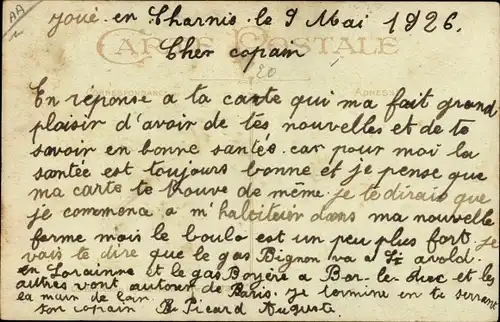 AA
Joué en Charnie le 9 Mai 1926.
CARTE POSTALE
Cher copain
20
CORRESPONDANCE ADRESSE
En réponse a ta carte qui ma fait grand
plaisir d'avoir de tes nouvelles et de te
savoir en bonne santés. car pour moi la
santée est toujours bonne et je pense que
ma carte te trouve de même. je te dirais que
je commena a m'habiteuer dans ma nouvelle
ferme mais le boulo est un peu plus fort. je
vais te dire que le gas Bignon va a St avold.
en Lorainne et le gas Boyère a Bar-le-duc et les
autres vont autour de Paris. je termine en te serrant
la main de loin.
ton copain Picard Auguste